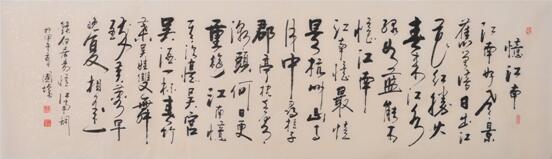 憶江南
江南好風景
舊曾諳日出江
花紅勝火
春來江水
綠如藍能不
憶江南
江南憶最憶
是杭州山寺
月中尋桂子
郡亭枕上看
潮頭何日更
重遊江南憶
其次憶吳宮
吳酒一杯春竹
葉吳娃雙舞
醉芙蓉早
晚復相逢
錄白居易憶江南詞
於甲午